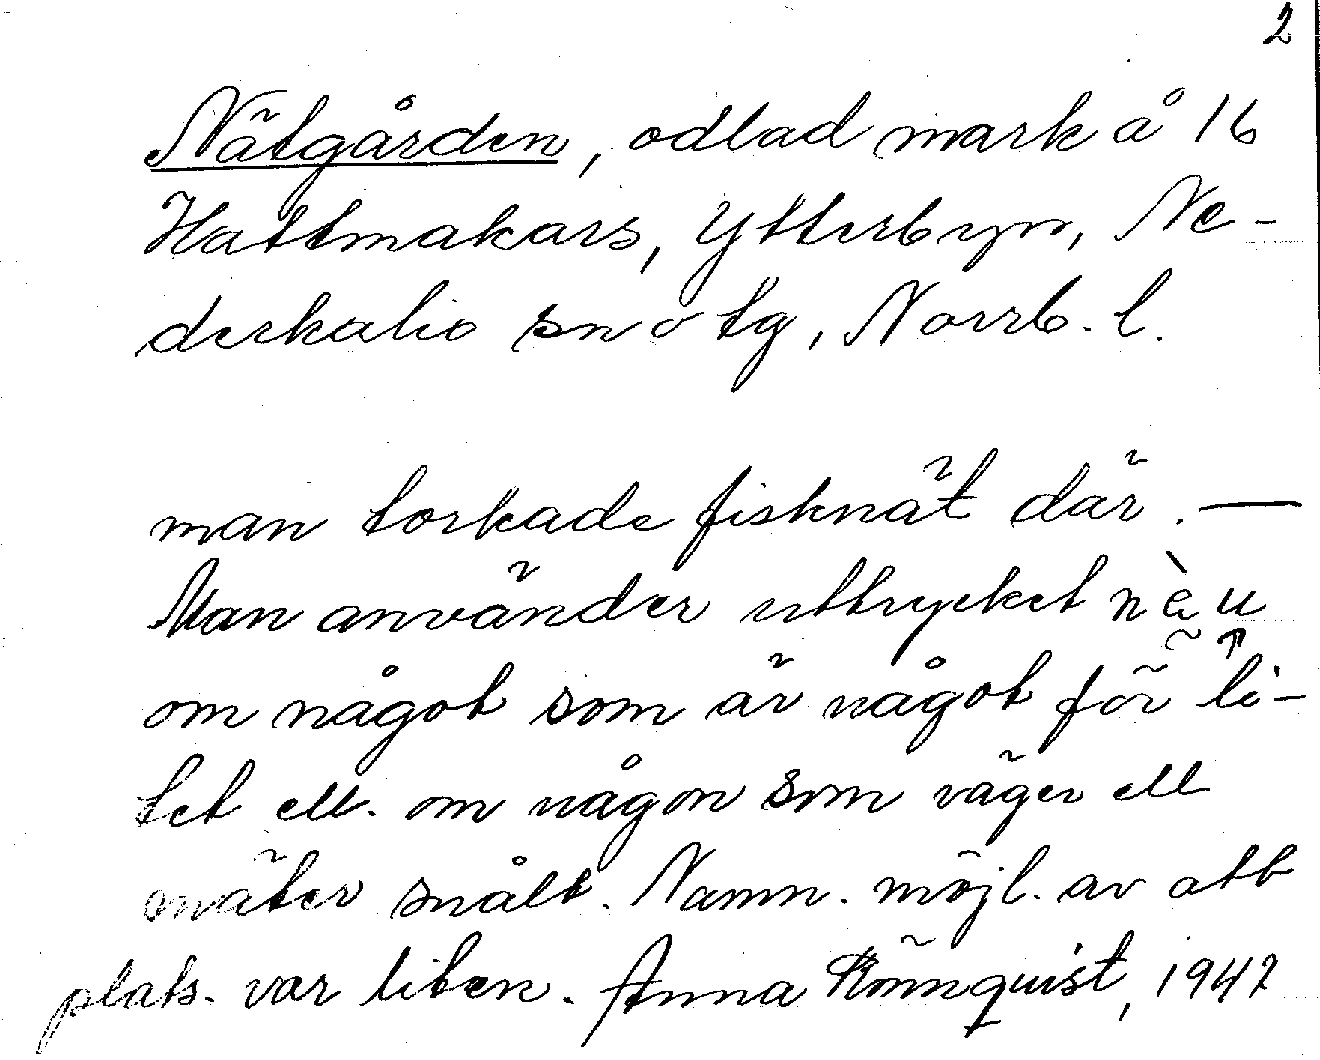 2
Nätgården, odlad mark å 16
Hattmakars, Ytterbyn, Ne-
derkalix sn o tg, Norrb. l.
man torkade fisknät där. —
Man använder uttrycket
om något som är något för li-
tet ell. om någon som väger ell
mäter snålt. Namn. möjl. av att
plats. var liten. Anna Rönnquist, 1942